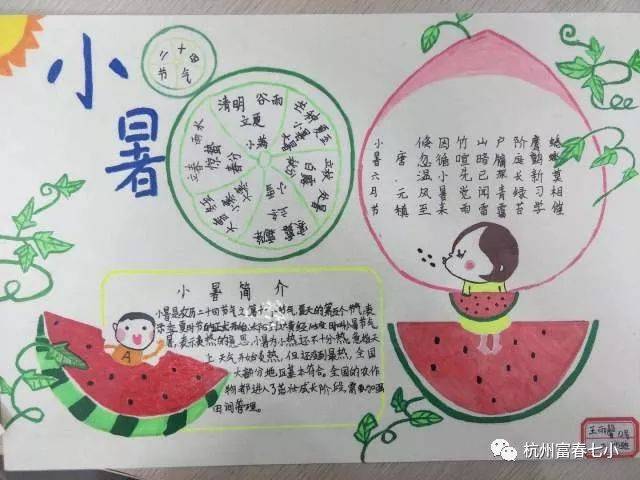 小暑
二十四
节气
清明 谷雨
立夏
小满
芒种 夏至
雨水
惊蛰
立春
春分
秋分
白露
处暑
小雪
立冬
寒露
霜降
小暑六月节
唐·元稹
倏忽温风至
因循小暑来
竹喧先觉雨
山暗已闻雷
户牖深青霭
阶庭长绿苔
鹰鹯新习学
蟋蟀莫相催
小暑简介
小暑是农历二十四节气之第十一个节气,夏天的第五个节气,表
示季夏时节的正式开始
暑,表示炎热的意思,小暑为小热,还不十分热。意指天
上天气开始炎热,但还没到最热,全国
大部分地区基本符合。全国的农作
物都进入了茁壮成长阶段,需加强
田间管理。
A
杭州富春七小